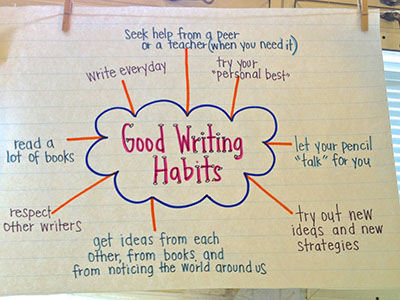 seek help from a peer
or a teacher (when you need it)
try your
"personal best"
let your pencil
"talk" for you
try out new
ideas and new
strategies
get ideas from each
other, from books, and
from noticing the world around us
respect
other writers
read a
lot of books
write everyday
Good Writing
Habits